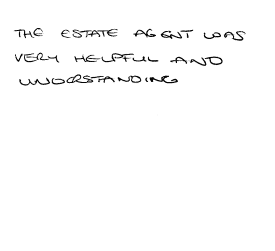 THE ESTATE AGENT WAS
VERY HELPFUL AND
UNDERSTANDING